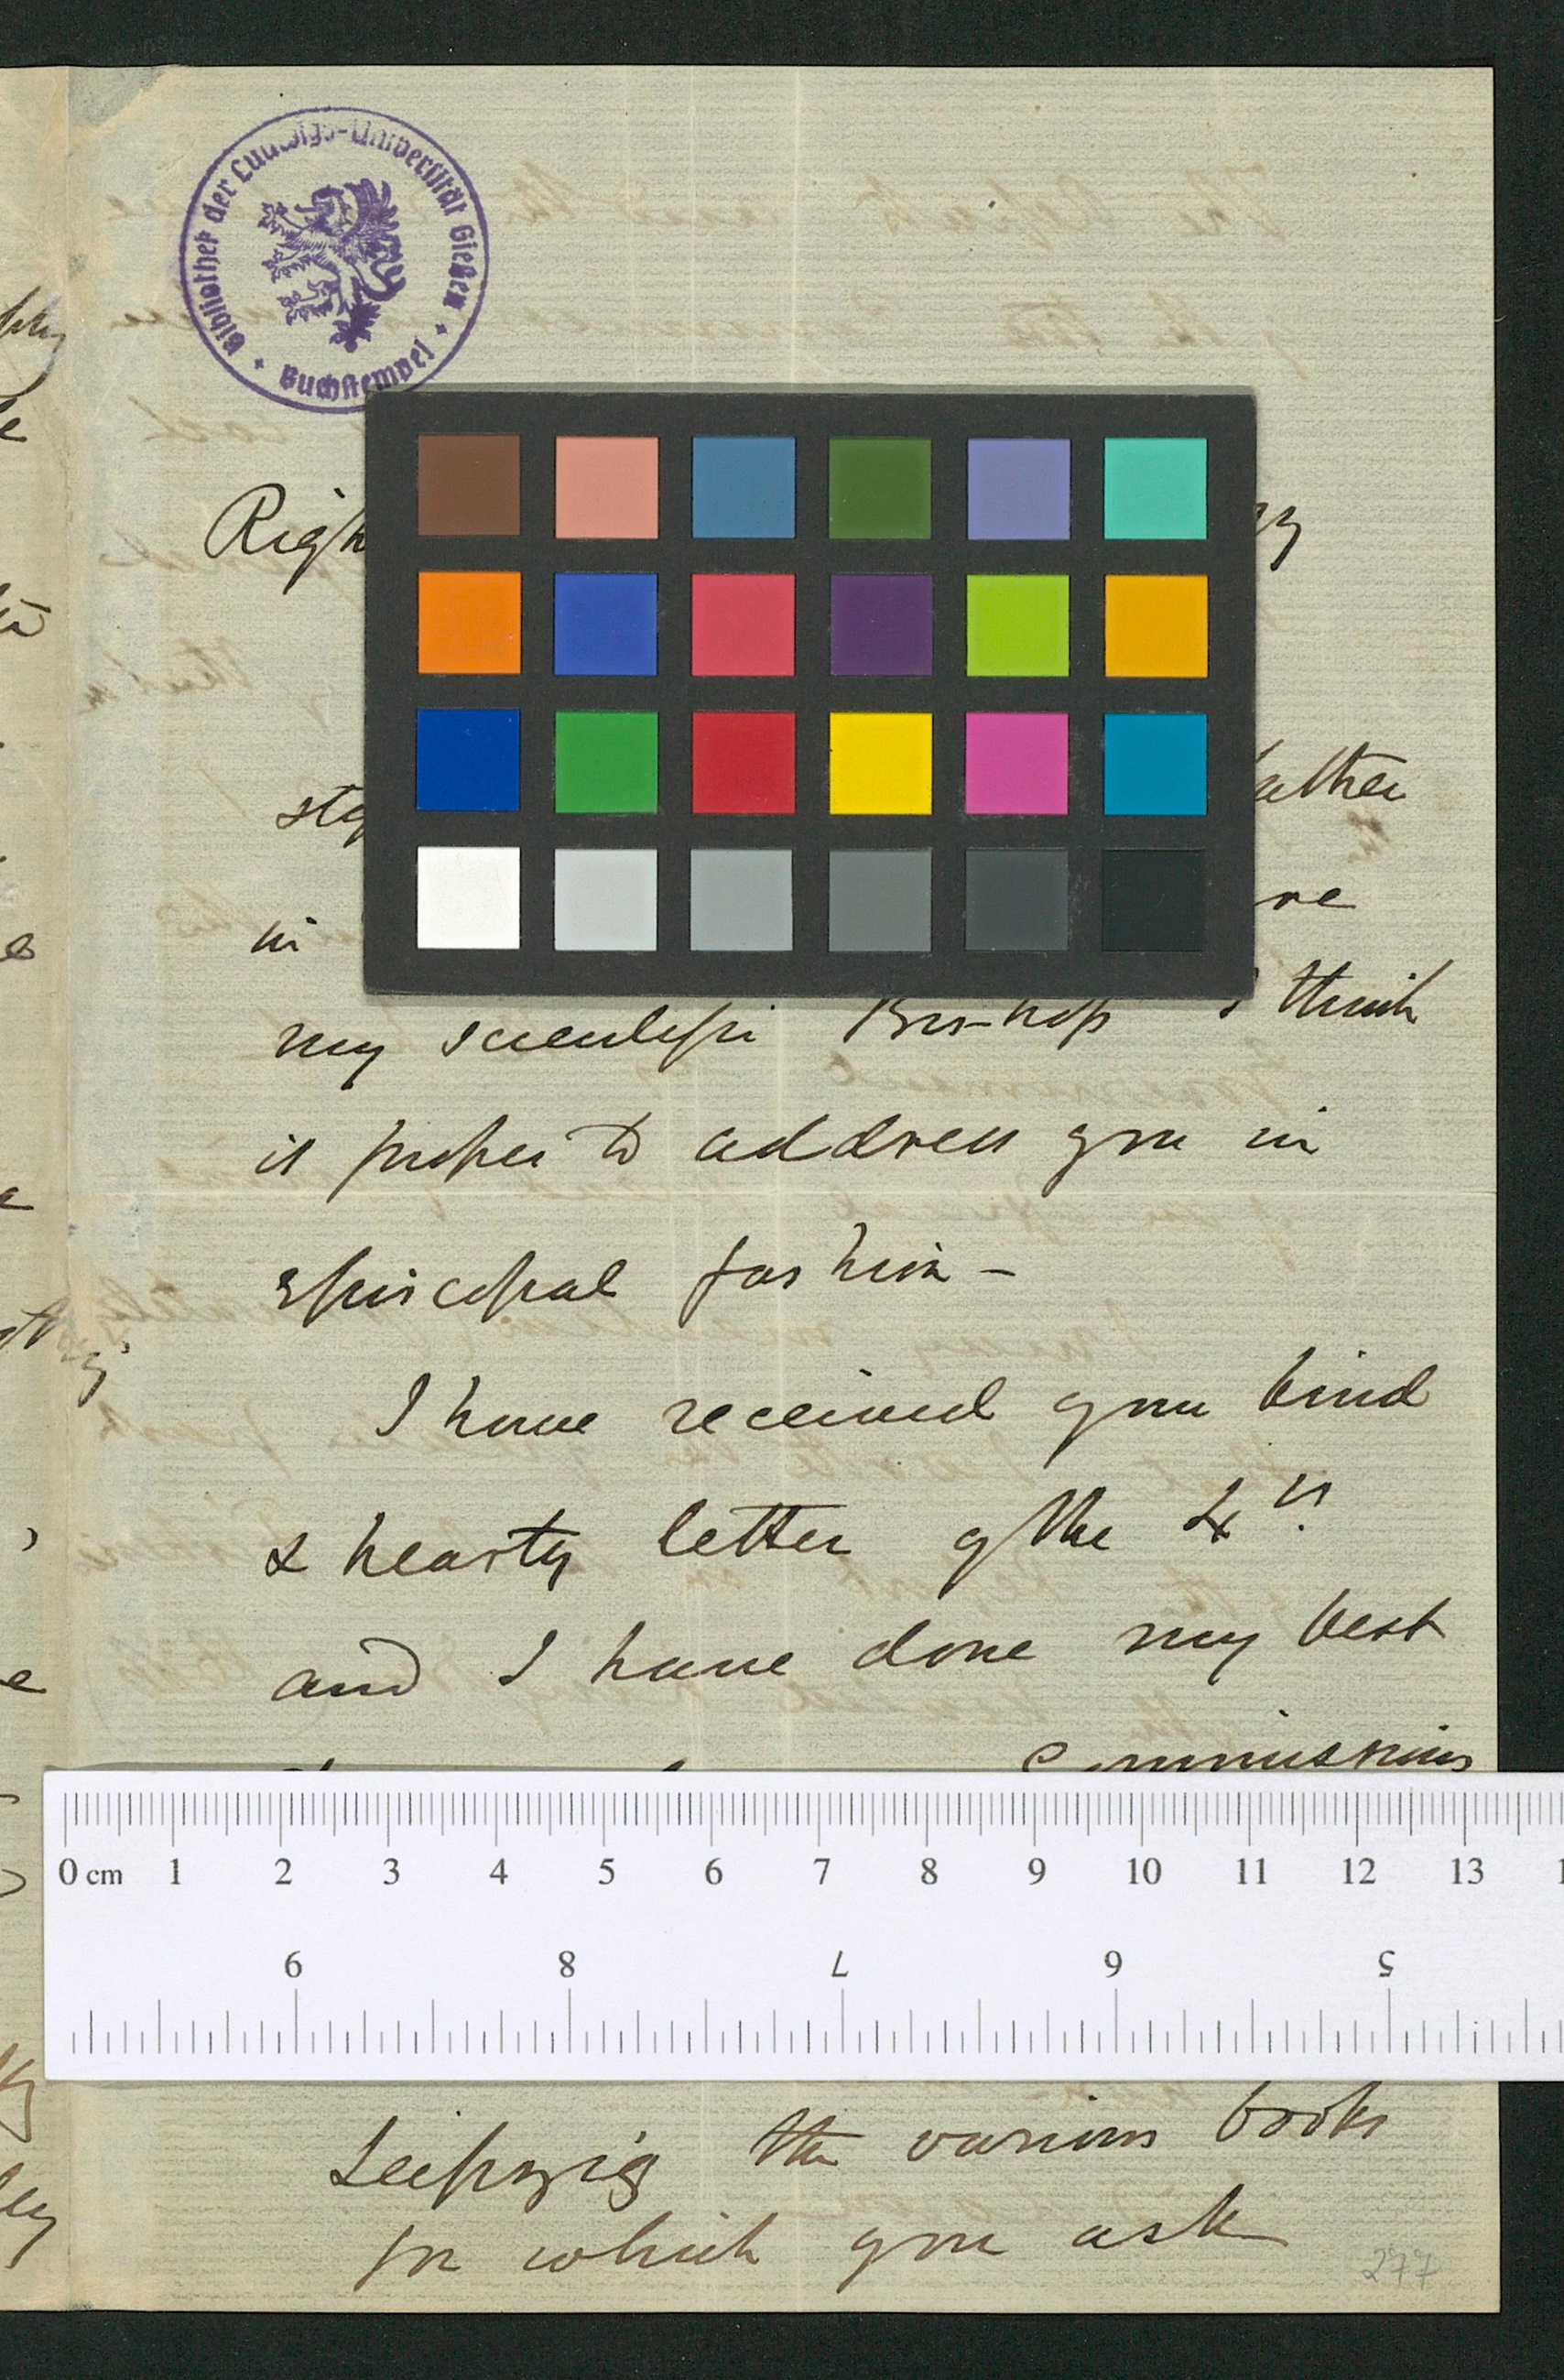 Bibliothek der Ludwigs-Universität Gießen
Buchstempel
Righ
in
my scientific Bishop I think
is proper to address you in
episcopal fashion -
I have received your kind
& hearty letter of the
and I have done my best
Commissions
0 cm 1 2 3 4 5 6 7 8 9 10 11 12 13
9 8 7 6 5
Leipzig the various books
for which you ask
277